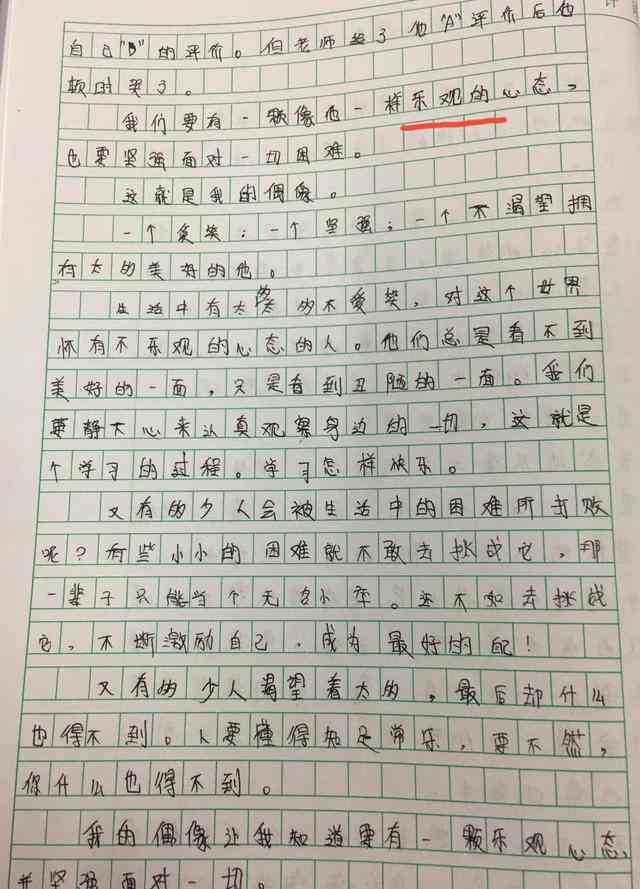 自己"B"的评价。但老师给了他"A"评价后他
顿时哭了。
我们要有一颗像他一样乐观的心态,
也要坚强面对一切困难。
这就是我的偶像。
一个爱笑;一个坚强;一个不渴望拥
有太的美好的他。
生活中有太的不爱笑,对这个世界
怀有不乐观的心态的人。他们总是看不到
美好的一面,又是看到丑陋的一面。我们
要静大心来认真观察身边的一切,这就是
个学习的过程。学习怎样快乐。
又有的少人会被生活中的困难所打败
呢?有些小小的困难就不敢去挑战它,那
一辈子只能当个无名小卒。还不如去挑战
它,不断激励自己,成为最好的自己!
又有的少人渴望着太的,最后却什么
也得不到。人要懂得知足常乐,要不然,
你什么也得不到。
我的偶像让我知道要有一颗乐观心态,
并坚强面对一切。